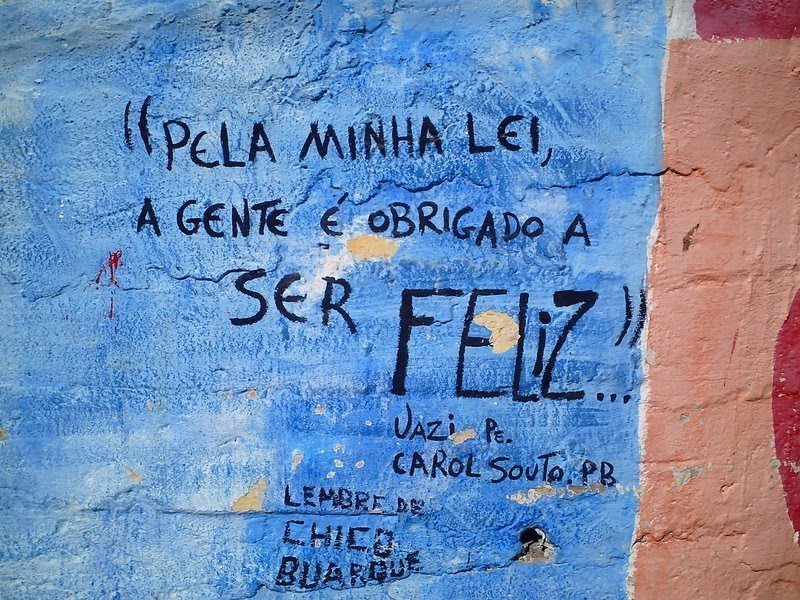 "PELA MINHA LEI,
A GENTE É OBRIGADO A
SER FELIZ..."
UAZi PE.
CAROL SOUTO. PB
LEMBRE DE
CHICO
BUARQUE